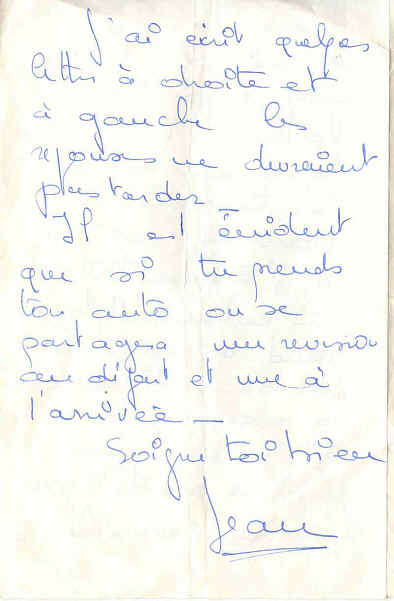 J'ai écrit quelques
lettres à droite et
à gauche les
réponses ne devraient
pas tarder
Il est évident
que si tu prends
ton auto on se
partagera une revision
au départ et une à
l'arrivée —
Soigne toi bien
Jean